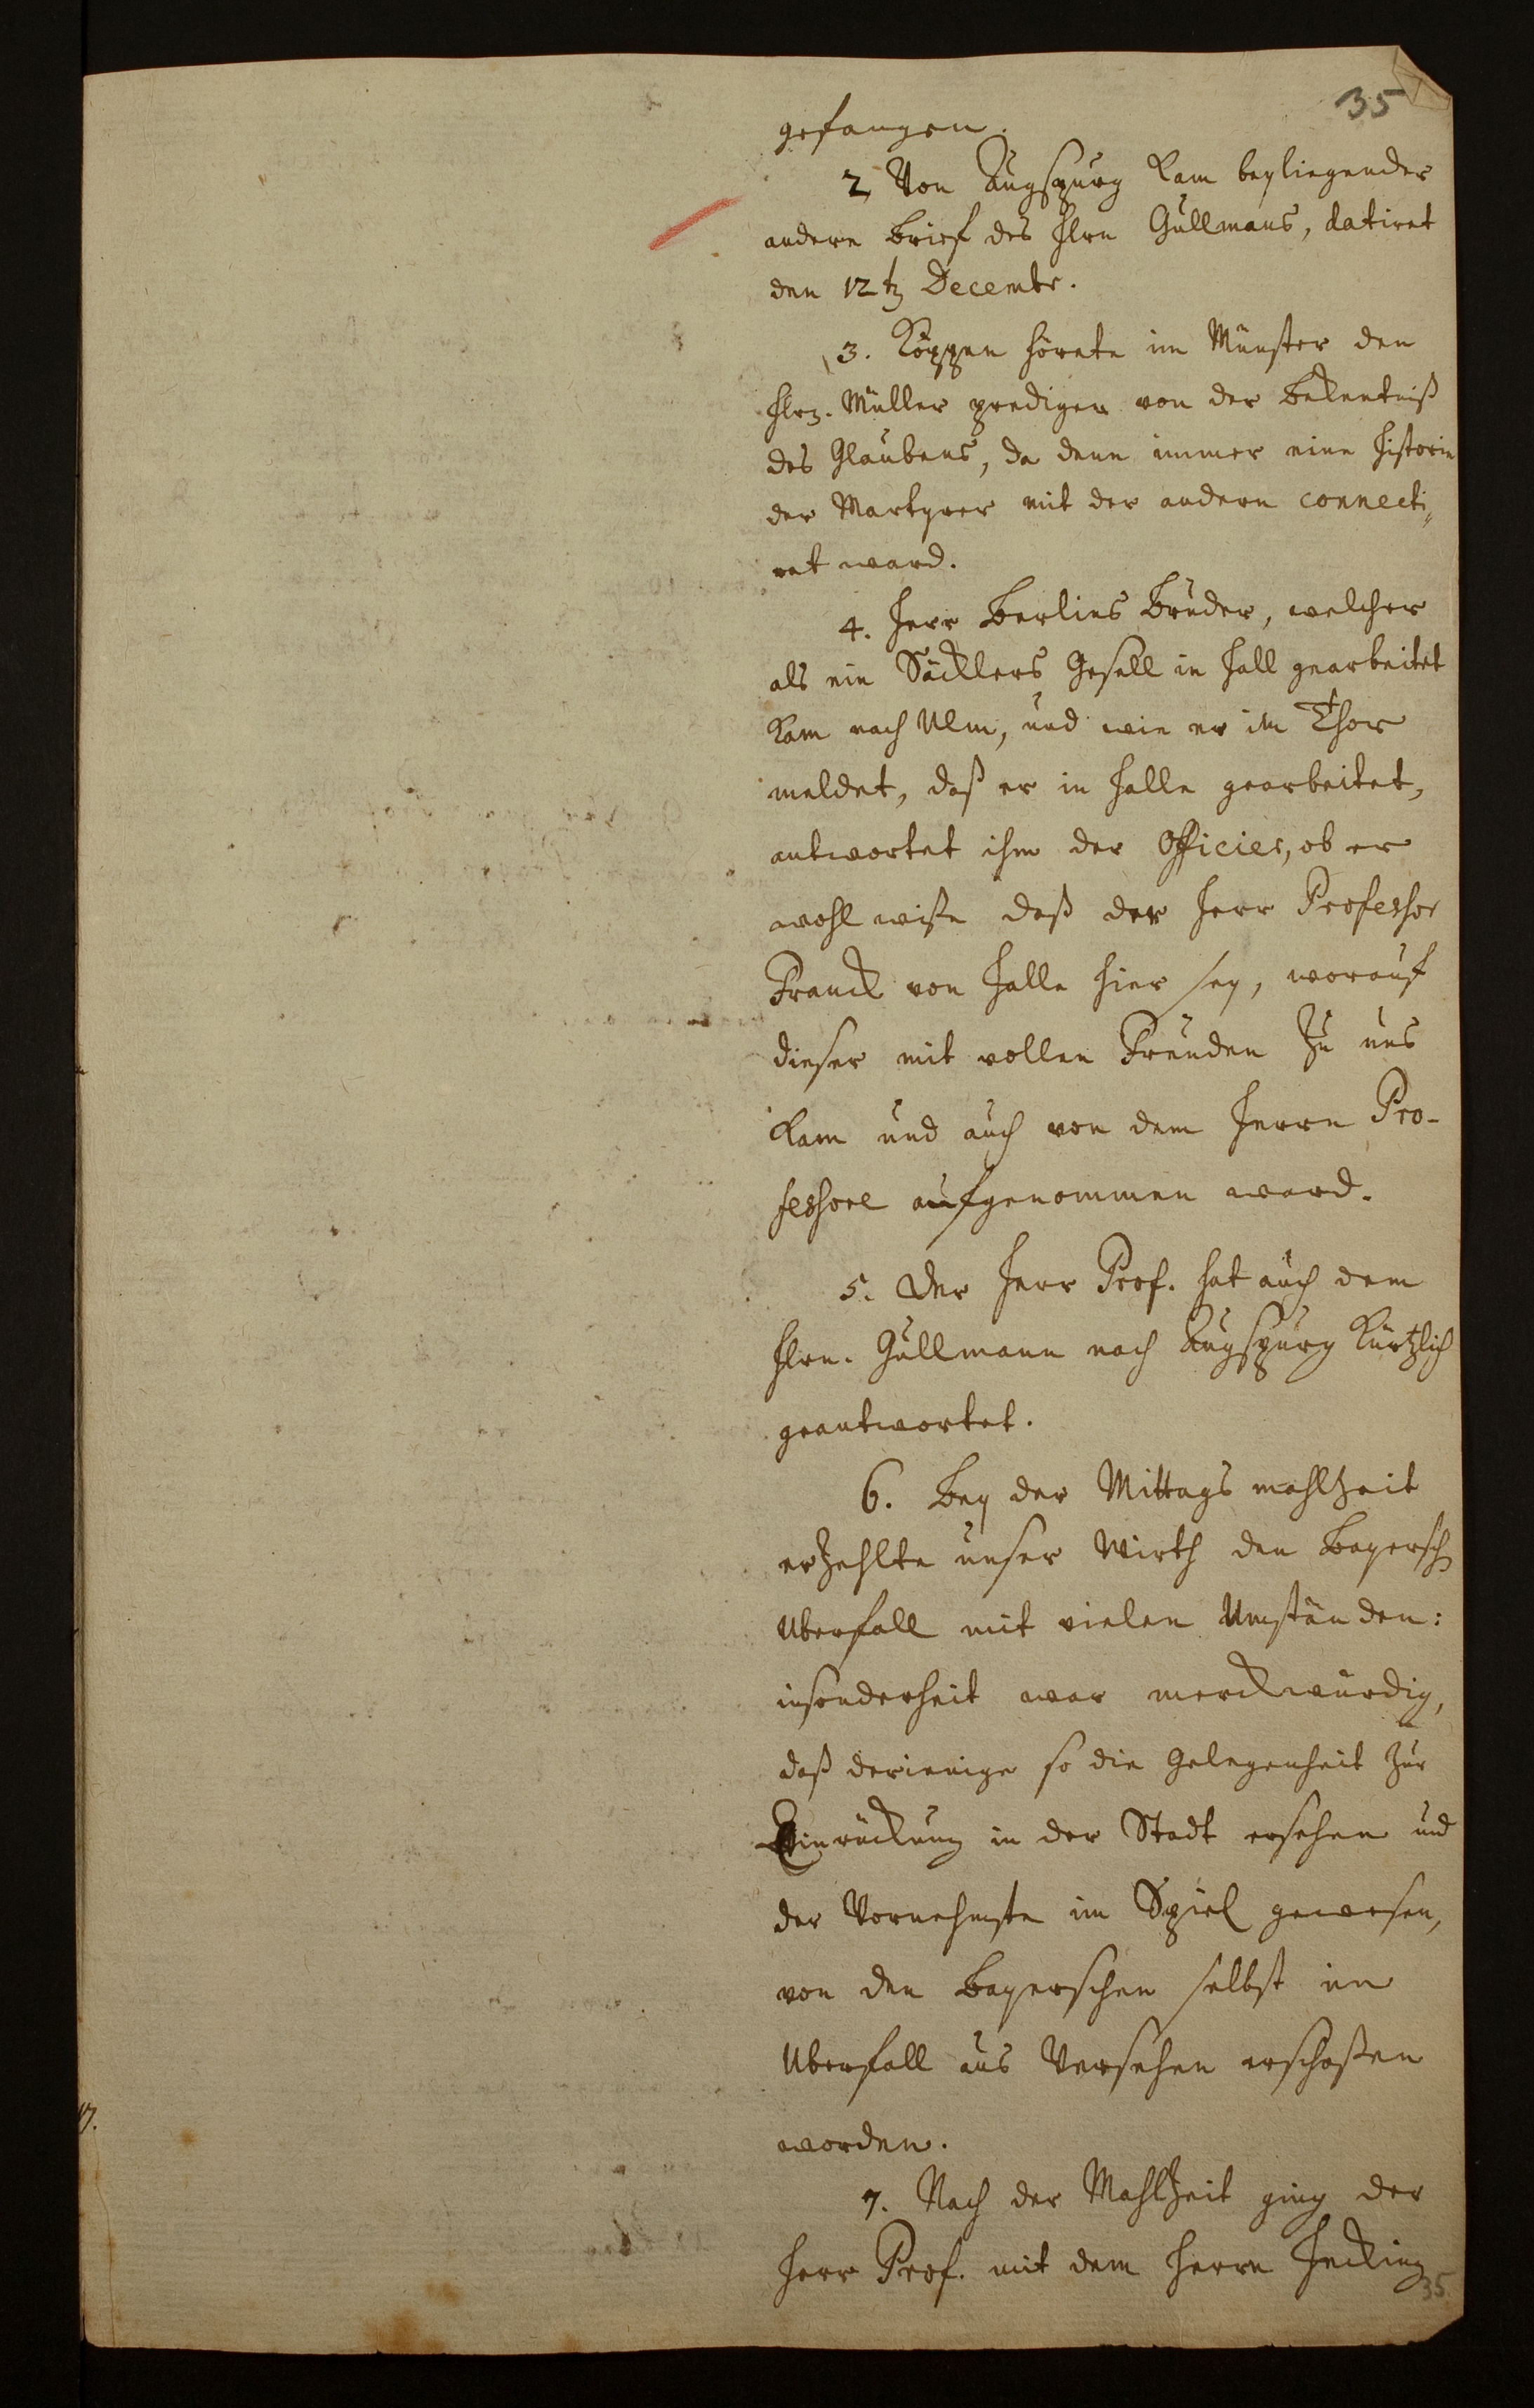 35
gefangen.
2, Von Augspurg kam beyliegender
andere Brief des Hlrn Gullmans, datiret
den 12 tz Decembr.
3. Köppen hörete im Münster den
Hlrn. Müller predigen von der Bekentniß
des Glaubens, da denn immer eine Historie
der Martyrer mit der andern connecti„
ret ward.
4. Herr Berlins Bruder, welcher
als ein Säcklers Gesell in Hall gearbeitet
kam nach Ulm, und wie er im Thor
meldet, daß er in Halle gearbeitet,
antwortet ihm der Officier, ob er
wohl wiße daß der Herr Professor
Franck von Halle hier sey, worauf
dieser mit vollen Freuden zu uns
kam und auch von dem Herrn Pro-
fessore aufgenommen ward.
5. Der Herr Prof. hat auch dem
Hlrn. Gullmann nach Augspurg kürtzlich
geantwortet.
6. Bey der Mittags mahlzeit
erzehlte unser Wirth den Bayersch
Uberfall mit vielen Umständen:
insonderheit war merckwürdig,
daß derienige so die Gelegenheit zur
Einrückung in der Stadt ersehen und
der Vornehmste im Spiel gewesen,
von den Bayerschen selbst im
Uberfall aus Versehen erschoßen
worden.
7. Nach der Mahlzeit ging der
Herr Prof. mit dem Herrn Hecking
35